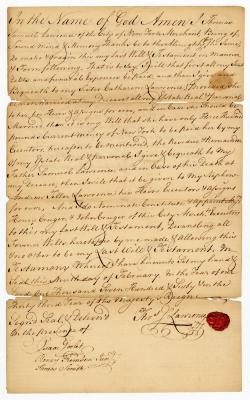 In the Name of God Amen I Thomas
Samuel Lawrence of the City of New York Merchant Being of
Sound Mind & Memory Thanks be to the Almighty
to make & Ordain this my last Will & Testament in Manner
& Form following That is to Say I will that first all my Just
Debts and funeral Expences be paid and then I give &
Bequeath to my Sister Catharine Lawrence
all my Estate Real & Personal
to her for Heirs for ever, and in Case She should be
Married then I will that she have only
pounds Current money of New York to be paid her by my
Executors hereafter to be mentioned, the residue Remainder
of my Estate Real & personal I give & bequeath to my
Father Samuel Lawrence and in Case of his Death at
my decease, then I will that to be given to My Nephew
Andrew Lawrence his Heirs Executors & Assigns
for ever. And I do Nominate Constitute & appoint
Henry Cuyler & John Cuyler of this City Merchts Executors
to this my Last Will & Testament, Revoking all
former Wills heretofore by me made & Allowing this
& no other to be my Last Will & Testament. In
Testamony Whereof I have hereunto Set my hand &
Seal this Ninth day of February In the Year of our
Lord One Thousand Seven Hundred & Sixty In the
thirty third Year of his Majestys Reign
Signd Seald & Deliverd
In the presence of
Thos. S. Lawrence